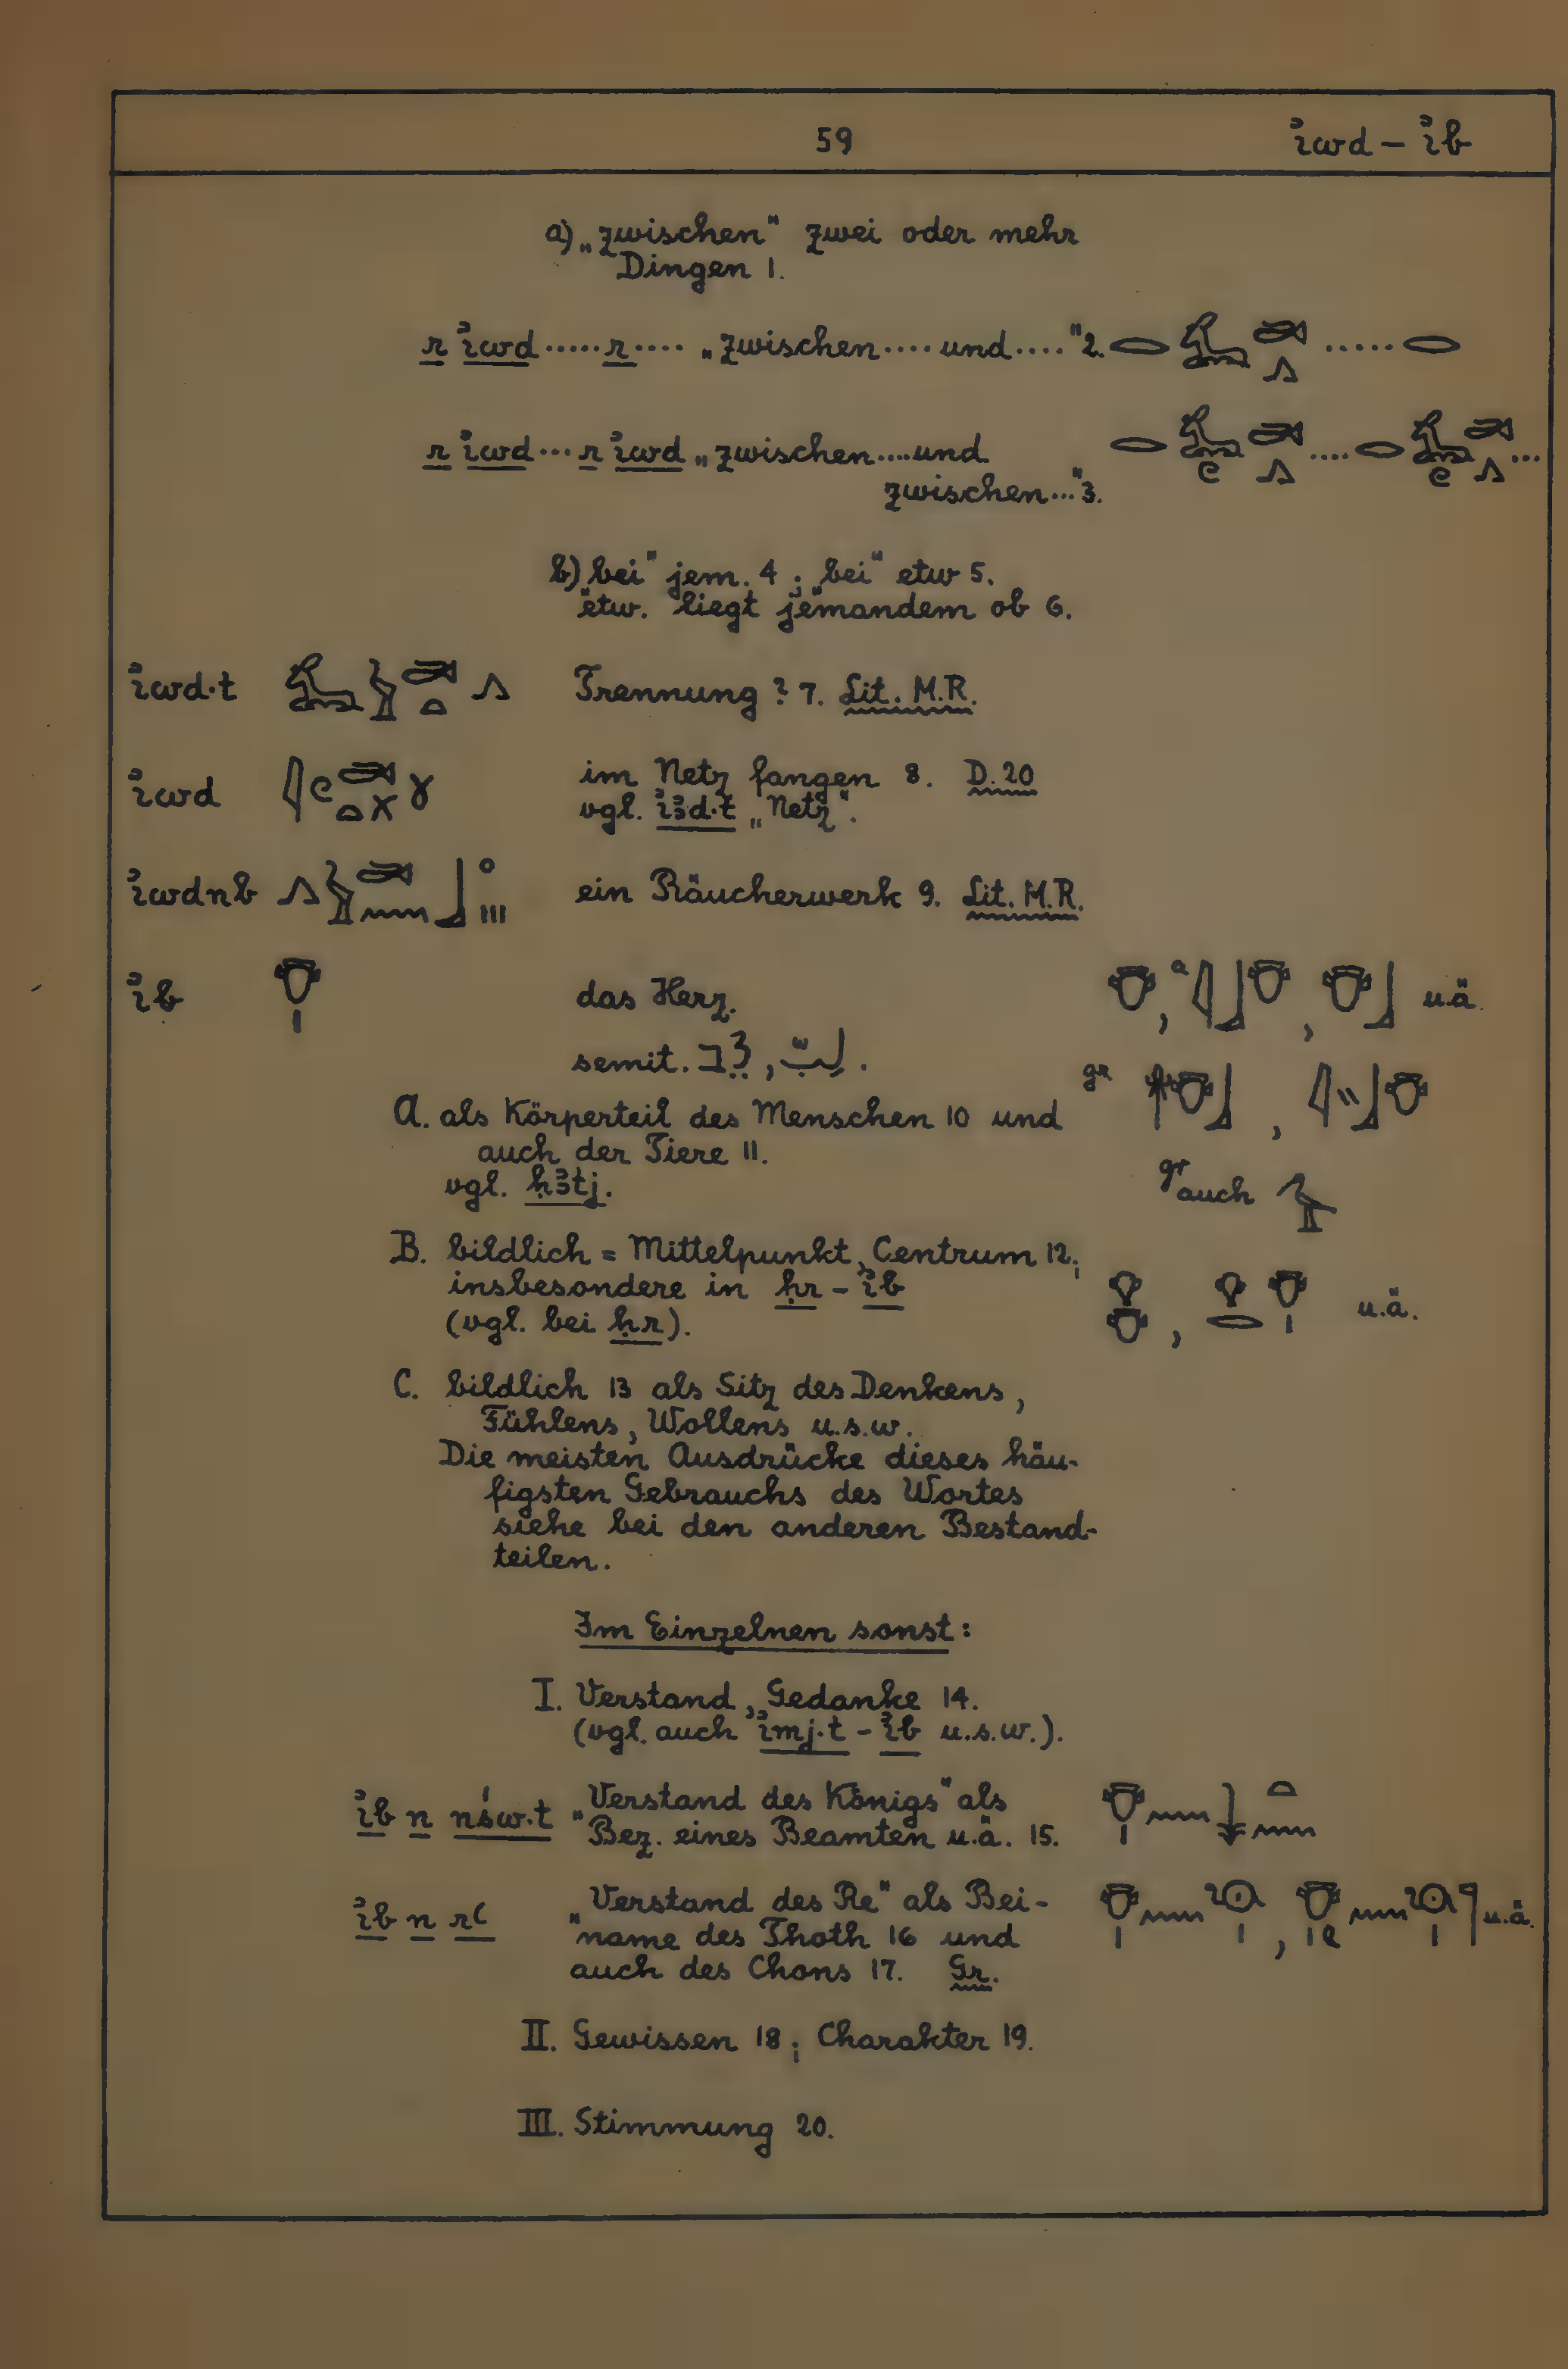 59 ꞽwd – ꞽb
a) „zwischen“ zwei oder mehr
Dingen 1.
r ꞽwd ..... r .... „zwischen .... und ....“ 2.
r ꞽwd ... r ꞽwd „zwischen .... und
zwischen ...“ 3.
b) „bei“ jem. 4 ; „bei“ etw 5.
etw. „liegt jemandem ob 6.
ꞽwd·t Trennung ? 7. Lit. M.R.
ꞽwd im Netz fangen 8. D. 20
vgl. ꞽꜣd·t „Netz“.
ꞽwdnb ein Räucherwerk 9. Lit. M.R.
ꞽb das Herz. u.ä.
semit. לֵב, لُبّ.
gr
A. als Körperteil des Menschen 10 und
auch der Tiere 11.
gr auch
vgl. ḥꜣtj.
B. bildlich = Mittelpunkt, Centrum 12;
insbesondere in ḥr – ꞽb u.ä.
(vgl. bei ḥr).
C. bildlich 13 als Sitz des Denkens,
Fühlens, Wollens u.s.w.
Die meisten Ausdrücke dieses häu-
figsten Gebrauchs des Wortes
siehe bei den anderen Bestand-
teilen.
Im Einzelnen sonst:
I. Verstand, Gedanke 14.
(vgl. auch ꞽmj·t – ꞽb u.s.w.).
ꞽb n nśw·t „Verstand des Königs“ als
Bez. eines Beamten u.ä. 15.
ꞽb n rꜥ „Verstand des Re“ als Bei- u.ä.
name des Thoth 16 und
auch des Chons 17. Gr.
II. Gewissen 18 ; Charakter 19.
III. Stimmung 20.